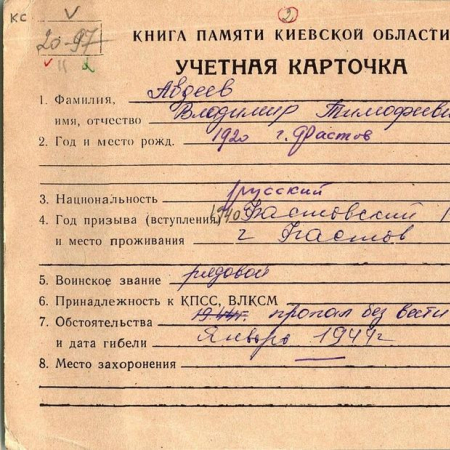 КС V 2
20-97
КНИГА ПАМЯТИ КИЕВСКОЙ ОБЛАСТИ
УЧЕТНАЯ КАРТОЧКА
1. Фамилия, Авдеев
имя, отчество Владимир Тимофееви
2. Год и место рожд. 1920 г. Фастов
3. Национальность русский
4. Год призыва (вступления) 1940 Фастовский
и место проживания г Фастов
5. Воинское звание рядовой
6. Принадлежность к КПСС, ВЛКСМ
7. Обстоятельства 1944г. пропал без вести
и дата гибели Январь 1944г
8. Место захоронения —